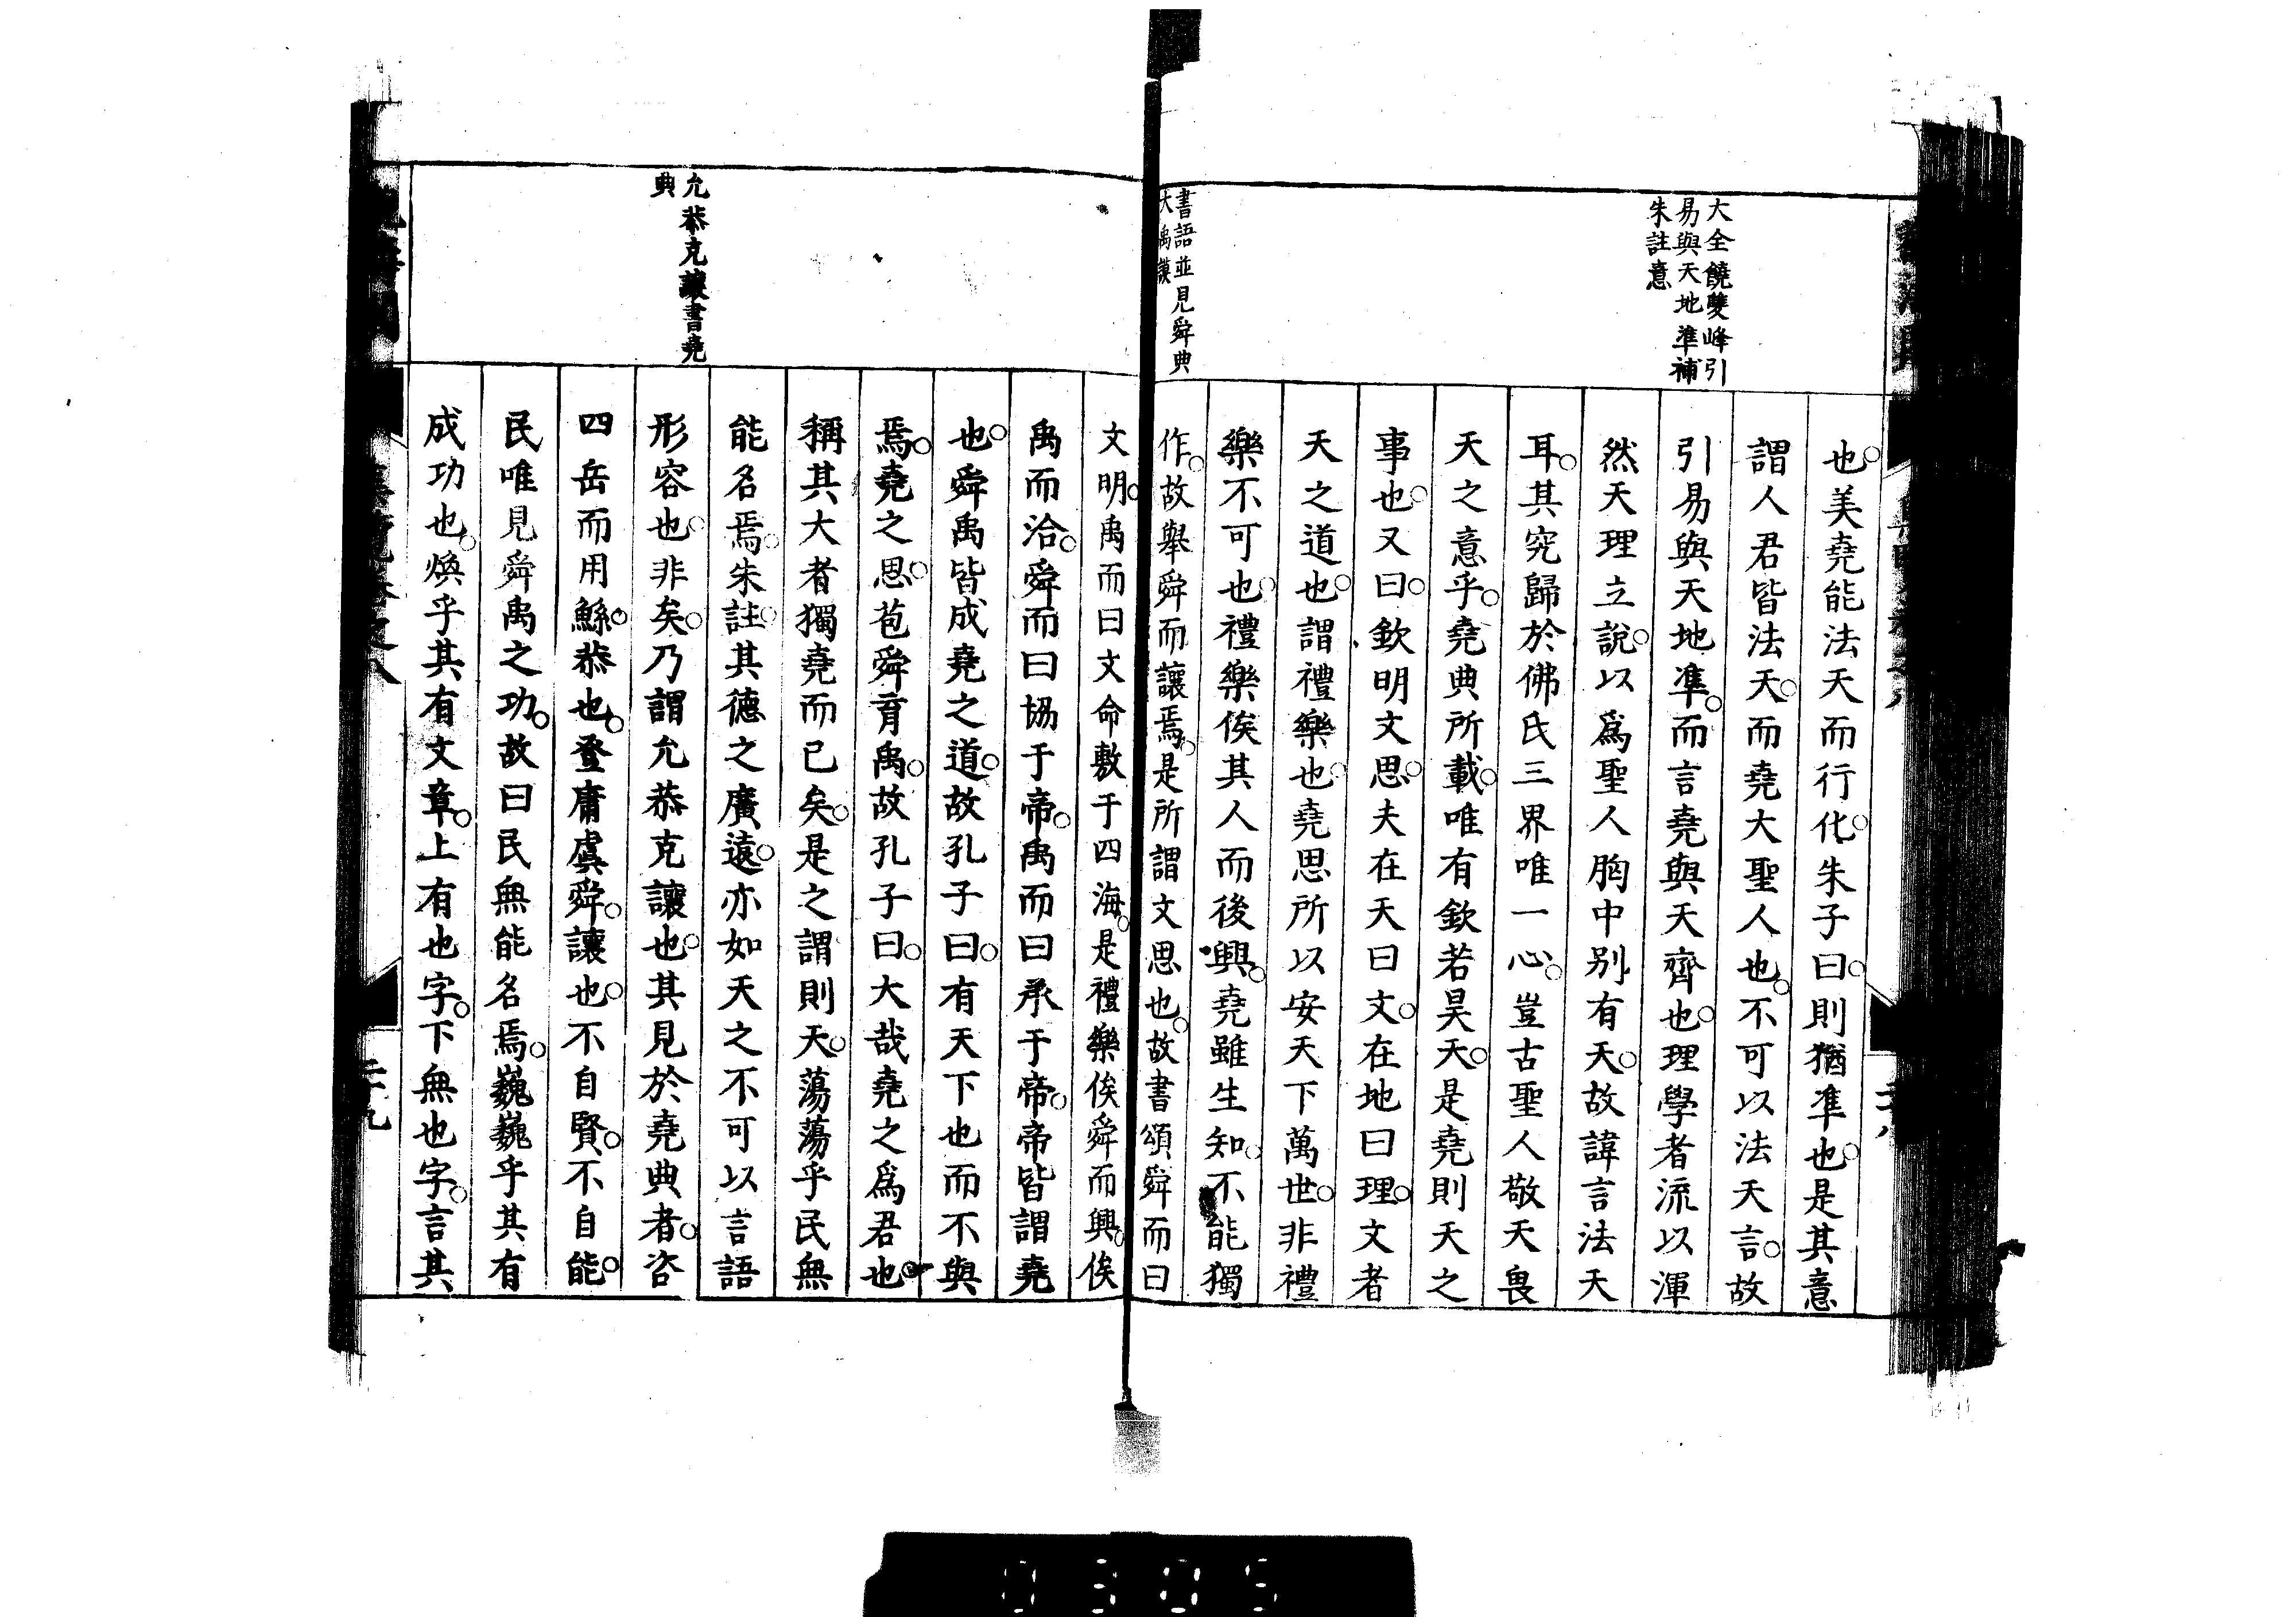 大全饒雙峰引
易與天地準補
朱註意
也美堯能法天而行化朱子曰則猶準也是其意
謂人君皆法天而堯大聖人也不可以法天言故
引易與天地準而言堯與天齊也理學者流以渾
然天理立說以爲聖人胸中別有天故諱言法天
耳其究歸於佛氏三界唯一心豈古聖人敬天畏
天之意乎堯典所載唯有欽若昊天是堯則天之
事也又曰欽明文思夫在天曰文在地曰理文者
天之道也謂禮樂也堯思所以安天下萬世非禮
樂不可也禮樂俟其人而後興堯雖生知不能獨
書語並見舜典
大禹謨
作故舉舜而讓焉是所謂文思也故書頌舜而曰
文明禹而曰文命敷于四海是禮樂俟舜而興俟
禹而洽舜而曰協于帝禹而曰承于帝帝皆謂堯
也舜禹皆成堯之道故孔子曰有天下也而不與
焉堯之思苞舜育禹故孔子曰大哉堯之爲君也
稱其大者獨堯而已矣是之謂則天蕩蕩乎民無
能名焉朱註其德之廣遠亦如天之不可以言語
允恭克讓書堯
典
形容也非矣乃謂允恭克讓也其見於堯典者咨
四岳而用鯀恭也登庸虞舜讓也不自賢不自能
民唯見舜禹之功故曰民無能名焉巍巍乎其有
成功也煥乎其有文章上有也字下無也字言其
0305